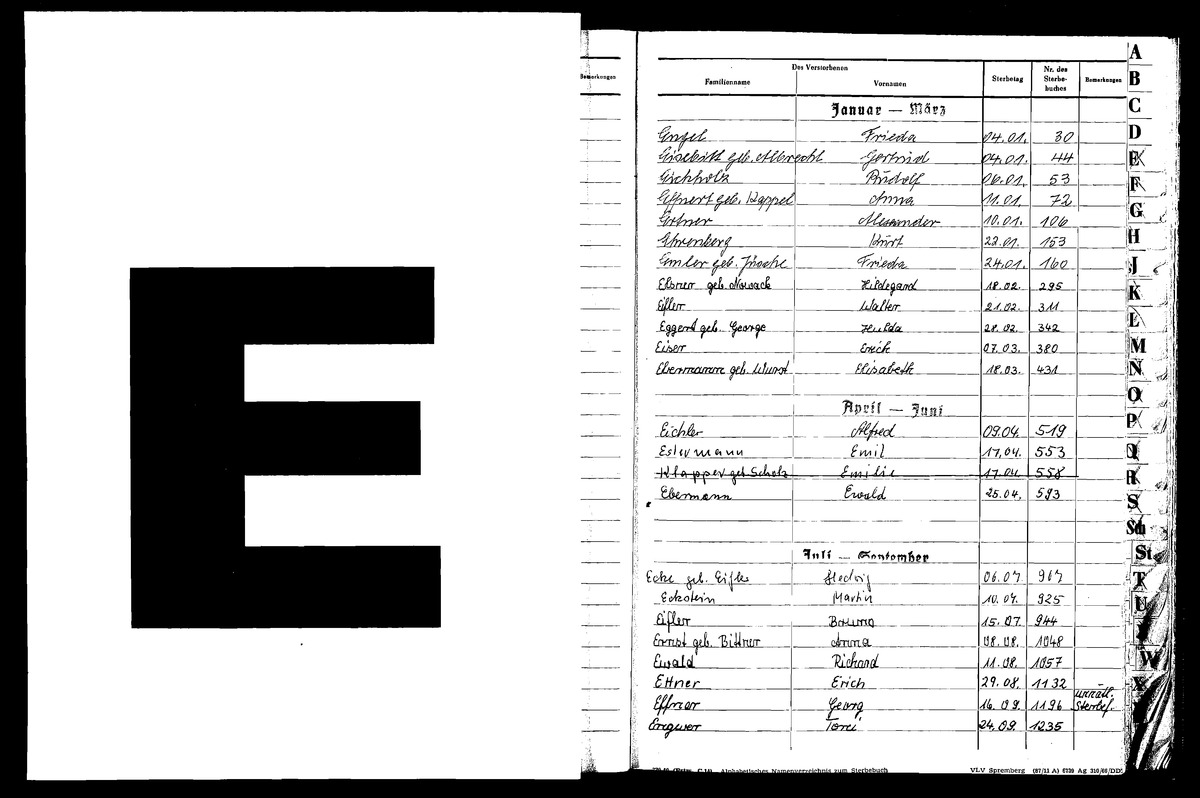 E
Bemerkungen
Des Verstorbenen
Familienname Vornamen Sterbetag Nr. des Sterbe-buches Bemerkungen
Januar — März
Engel Frieda 04.01. 30
geb. Albrecht Gertrud 04.01. 44
Eichholz Rudolf 06.01. 53
Effnert geb. Kappel Anna 11.01. 72
Ertner Alexander 10.01. 106
Ehrenberg Kurt 22.01. 153
Emler geb. Frieda 24.01. 160
Elsner geb. Nowack Hildegard 18.02. 295
Eifler Walter 21.02. 311
Eggert geb. George Hulda 28.02. 342
Eiser Erich 07.03. 380
Ebermann geb. Wurst Elisabeth 18.03. 431
April — Juni
Eichler Alfred 09.04. 519
Estermann Emil 17.04. 553
Klapper geb. Scholz Emilie 17.04. 558
Ebermann Ewald 25.04. 593
Juli — September
Ecke geb. Eifler Hedwig 06.07. 907
Eckstein Martin 10.07. 925
Eifler Bruno 15.07. 944
Ernst geb. Bittner Anna 08.08. 1048
Ewald Richard 11.08. 1057
Ettner Erich 29.08. 1132
Effner Georg 16.09. 1196 Sterbef.
Engwer 24.09. 1235
Alphabetisches Namenverzeichnis zum Sterbebuch
VLV Spremberg (87/11 A) 6220 Ag 310/66/DDR
A
B
C
D
E
F
G
H
J
K
L
M
N
O
P
Q
R
S
Sch
St
T
U
W
X